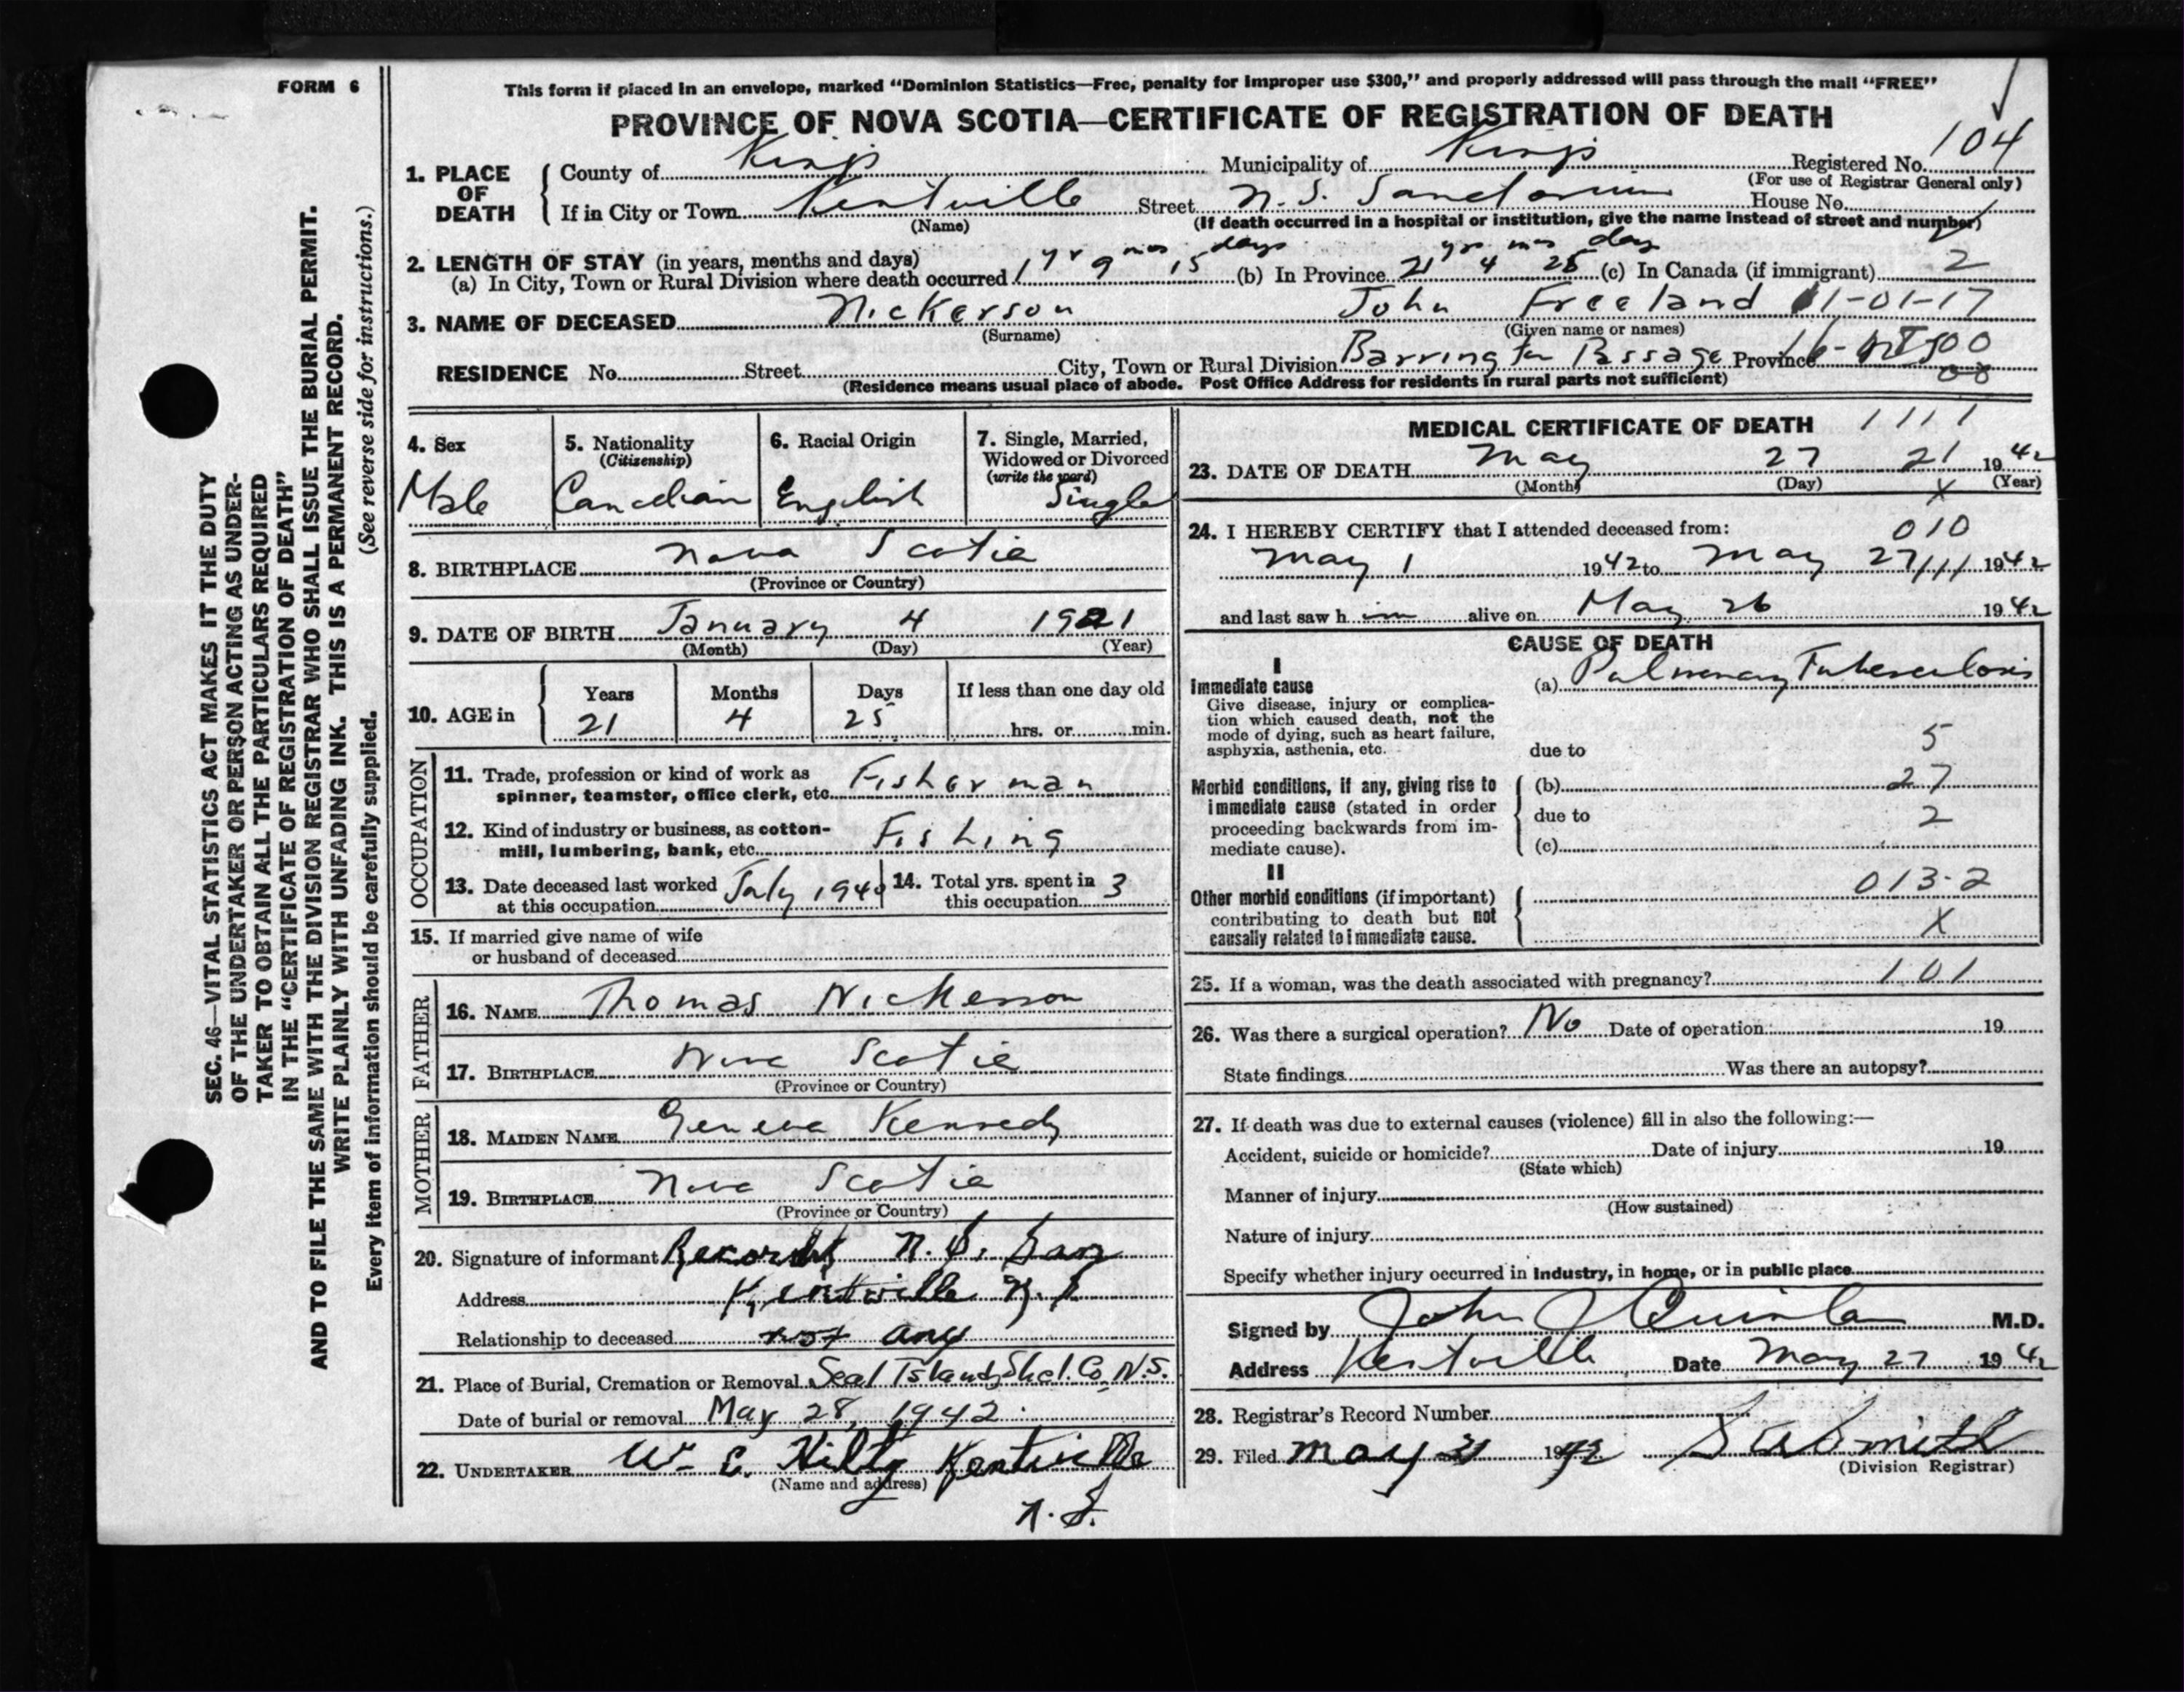 FORM 6
This form if placed in an envelope, marked “Dominion Statistics—Free, penalty for improper use $300,” and properly addressed will pass through the mail “FREE”
PROVINCE OF NOVA SCOTIA—CERTIFICATE OF REGISTRATION OF DEATH
1. PLACE OF DEATH
County of Kings Municipality of Kings Registered No. 104
(For use of Registrar General only)
If in City or Town Kentville Street N. S. Sanatorium House No.
(Name) (If death occurred in a hospital or institution, give the name instead of street and number)
2. LENGTH OF STAY (in years, months and days)
(a) In City, Town or Rural Division where death occurred 1 yr 9 mos 15 days (b) In Province 21 yrs 4 mos 25 days (c) In Canada (if immigrant) 2
3. NAME OF DECEASED Nickerson John Freeland 11-01-17
(Surname) (Given name or names)
RESIDENCE No. Street City, Town or Rural Division Barrington Passage Province
(Residence means usual place of abode. Post Office Address for residents in rural parts not sufficient)
4. Sex Male
5. Nationality (Citizenship) Canadian
6. Racial Origin English
7. Single, Married, Widowed or Divorced (write the word) Single
8. BIRTHPLACE Nova Scotia
(Province or Country)
9. DATE OF BIRTH January 4 1921
(Month) (Day) (Year)
10. AGE in Years 21 Months 4 Days 25 If less than one day old hrs. or min.
OCCUPATION
11. Trade, profession or kind of work as spinner, teamster, office clerk, etc. Fisherman
12. Kind of industry or business, as cotton-mill, lumbering, bank, etc. Fishing
13. Date deceased last worked at this occupation July 1940
14. Total yrs. spent in this occupation 3
15. If married give name of wife
or husband of deceased
FATHER
16. NAME Thomas Nickerson
17. BIRTHPLACE Nova Scotia
(Province or Country)
MOTHER
18. MAIDEN NAME Geneva Kennedy
19. BIRTHPLACE Nova Scotia
(Province or Country)
20. Signature of informant Records N. S. San
Address Kentville N. S.
Relationship to deceased not any
21. Place of Burial, Cremation or Removal Seal Island, Shel. Co, N.S.
Date of burial or removal May 28, 1942
22. UNDERTAKER W. E. Hiltz Kentville
(Name and address)
N. S.
MEDICAL CERTIFICATE OF DEATH 1111
23. DATE OF DEATH May 27 21 1942
(Month) (Day) (Year)
X
24. I HEREBY CERTIFY that I attended deceased from: 010
May 1 1942 to May 27 111 1942
and last saw him alive on May 26 1942
CAUSE OF DEATH
I
Immediate cause
Give disease, injury or complica-
tion which caused death, not the
mode of dying, such as heart failure,
asphyxia, asthenia, etc.
(a) Pulmonary Tuberculosis
due to 5
Morbid conditions, if any, giving rise to
immediate cause (stated in order
proceeding backwards from im-
mediate cause).
(b) 27
due to 2
(c)
II
Other morbid conditions (if important)
contributing to death but not
causally related to immediate cause.
013-2
X
25. If a woman, was the death associated with pregnancy? 101
26. Was there a surgical operation? No Date of operation 19
State findings Was there an autopsy?
27. If death was due to external causes (violence) fill in also the following:—
Accident, suicide or homicide? Date of injury 19
(State which)
Manner of injury
(How sustained)
Nature of injury
Specify whether injury occurred in industry, in home, or in public place
Signed by John J Quinlan M.D.
Address Kentville Date May 27 1942
28. Registrar's Record Number
29. Filed May 31 1942 Smith
(Division Registrar)
SEC. 46—VITAL STATISTICS ACT MAKES IT THE DUTY
OF THE UNDERTAKER OR PERSON ACTING AS UNDER-
TAKER TO OBTAIN ALL THE PARTICULARS REQUIRED
IN THE “CERTIFICATE OF REGISTRATION OF DEATH”
AND TO FILE THE SAME WITH THE DIVISION REGISTRAR WHO SHALL ISSUE THE BURIAL PERMIT.
WRITE PLAINLY WITH UNFADING INK. THIS IS A PERMANENT RECORD.
Every item of information should be carefully supplied. (See reverse side for instructions.)